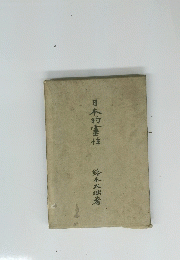 日本的霊性
鈴木大拙著